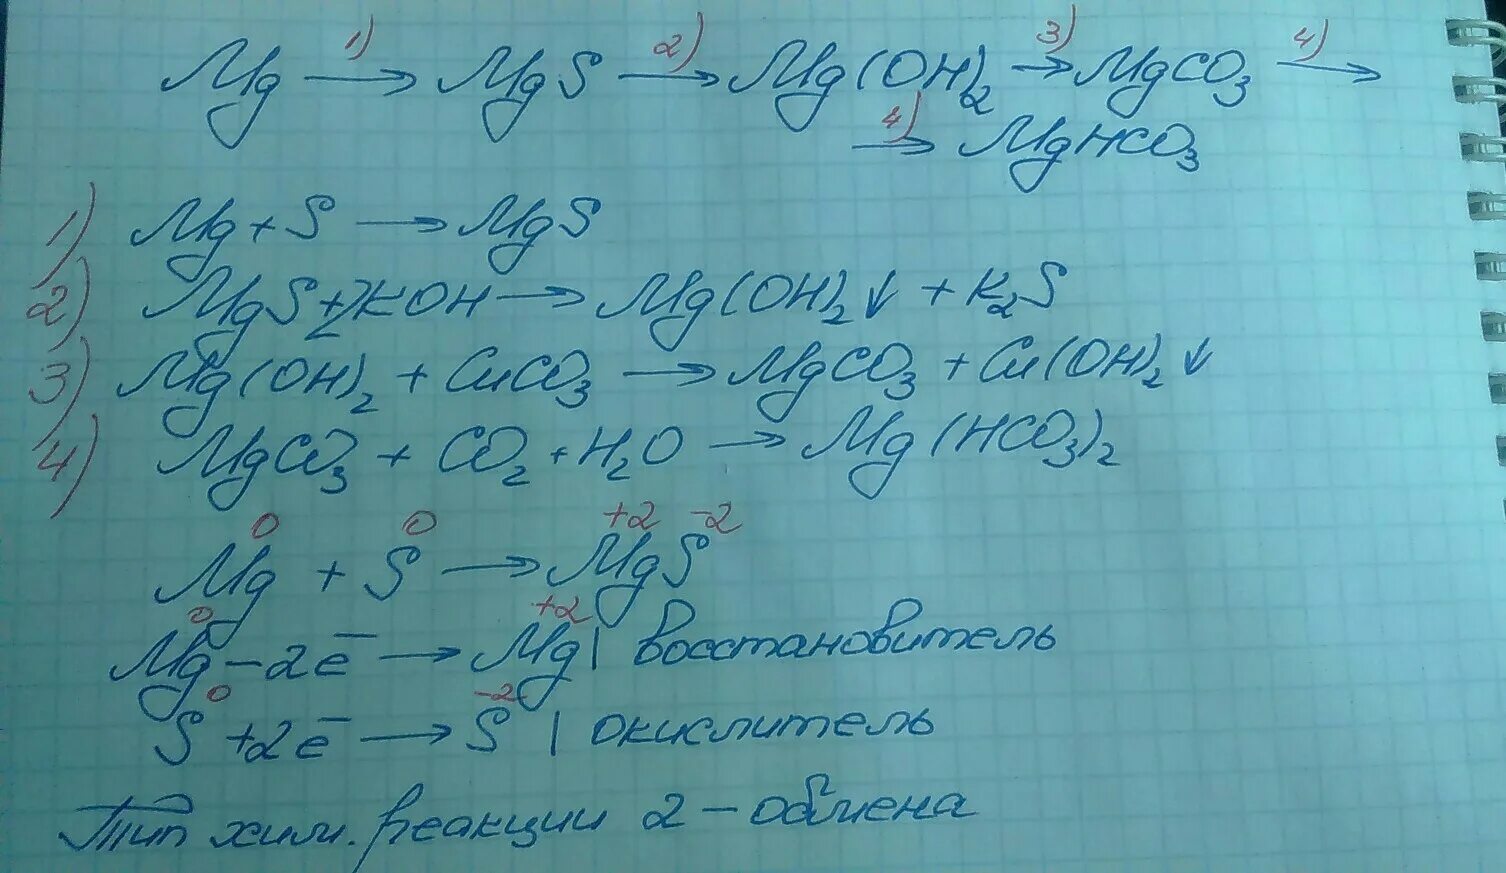 Mg 1)→ MgS 2)→ Mg(OH)₂ 3)→ MgCO₃ 4)→
4)→ MgHCO₃
1) Mg + S → MgS
2) MgS + 2KOH → Mg(OH)₂↓ + K₂S
3) Mg(OH)₂ + CuCO₃ → MgCO₃ + Cu(OH)₂↓
4) MgCO₃ + CO₂ + H₂O → Mg(HCO₃)₂
Mg⁰ + S⁰ → Mg⁺²S⁻²
Mg⁰ – 2e⁻ → Mg⁺² | восстановитель
S⁰ + 2e⁻ → S⁻² | окислитель
Тип хим. реакции 2 – обмена